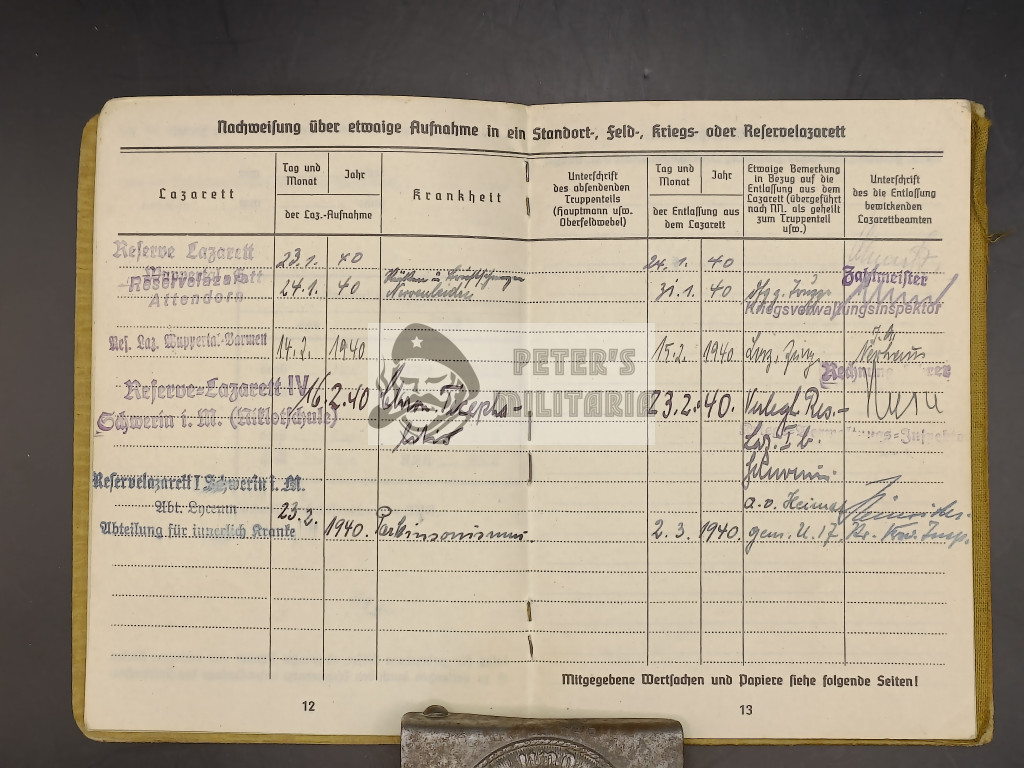 Nachweisung über etwaige Aufnahme in ein Standort-, Feld-, Kriegs- oder Reservelazarett
Lazarett
Tag und Monat
Jahr
der Laz.-Aufnahme
Krankheit
Unterschrift
des absendenden
Truppenteils
(Hauptmann usw.
Oberfeldwebel)
Tag und Monat
Jahr
der Entlassung aus
dem Lazarett
Etwaige Bemerkung
in Bezug auf die
Entlassung aus dem
Lazarett (übergeführt
nach M. als geheilt
zum Truppenteil
usw.)
Unterschrift
des die Entlassung
bewirkenden
Lazarettbeamten
Reserve Lazarett
23.1. 40
24.1. 40
Zahlmeister
Reservelazarett
Attendorn
24.1. 40
Nervenleiden
31.1. 40
Kriegsverwaltungsinspektor
Res. Laz. Wuppertal-Barmen
14.2. 1940
15.2. 1940
PETER'S
MILITARIA
Reserve-Lazarett IV
Schwerin i. M. (Niklotschule)
16.2.40
23.2.40.
Verlegt Res.-
Laz. I b.
Schwerin
Reservelazarett I Schwerin i. M.
Abt. Lyceum
Abteilung für innerlich Kranke
23.2. 1940.
Parkinsonismus.
2.3. 1940.
a.v. Heimat
gem. U. 17.
Mitgegebene Wertsachen und Papiere siehe folgende Seiten!
12
13